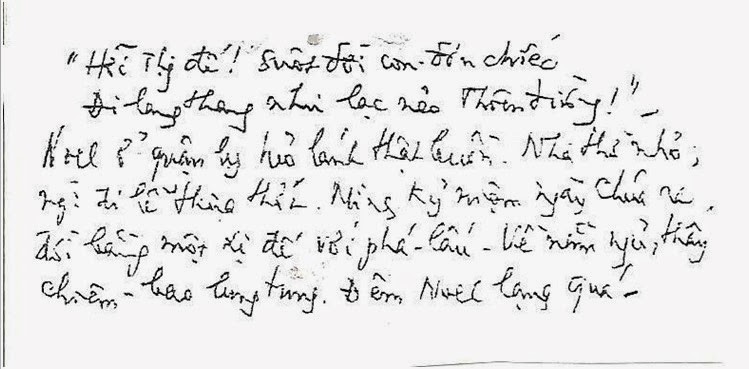 "Hỡi Thị đế! Suốt đời con đơn chiếc
Đi lang thang như lạc nẻo Thiên đường!" –
Noel ở quận lỵ hẻo lánh thật buồn. Nhà thờ nhỏ,
ng` đi lễ thưa thớt. Mừng kỷ niệm ngày Chúa ra
đời bằng một xị đế với phá-lấu – Về nằm ngủ, thấy
chiêm-bao lung tung. Đêm Noel lạng quá –